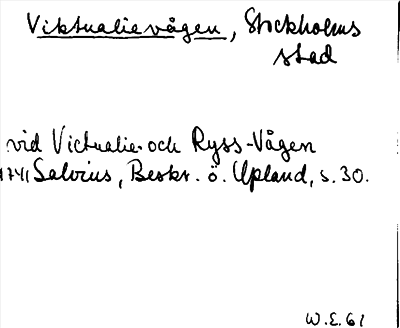 Viktualievågen, Stockholms
stad
vid Victualie- och Ryss-Vågen
1741 Salvius, Beskr. ö. Upland, s. 30.
W.E. 61